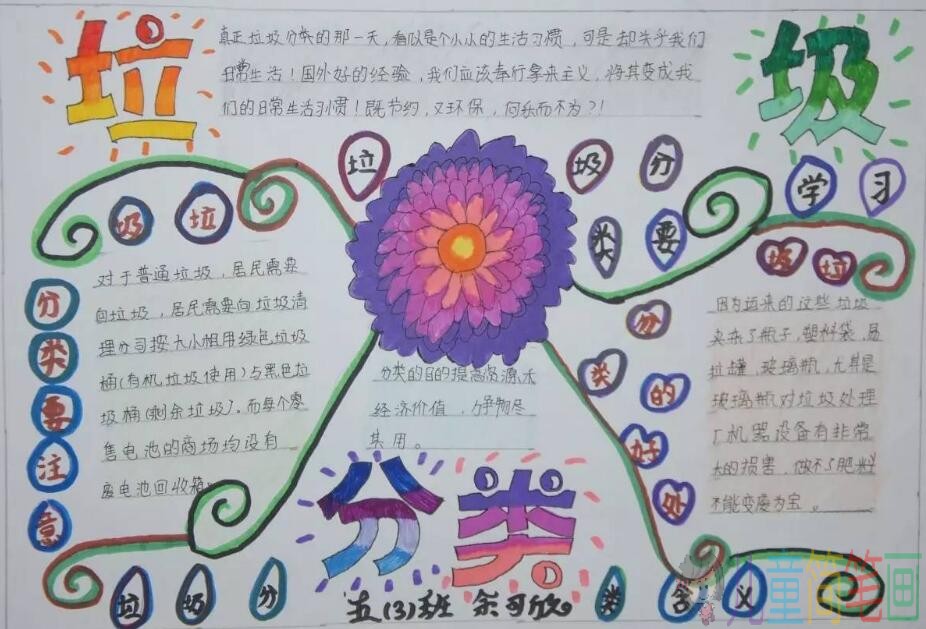 垃圾
真正垃圾分类的那一天，看似是个小小的生活习惯，可是却关乎我们
日常生活！国外好的经验，我们应该奉行拿来主义，将其变成我
们的日常生活习惯！既节约，又环保，何乐而不为？！
垃圾分类要学习
圾垃
分类要注意
对于普通垃圾，居民需要
自垃圾，居民需要向垃圾清
理公司按大小租用绿色垃圾
桶(有机垃圾使用)与黑色垃
圾桶(剩余垃圾)。而每个零
售电池的商场均设有
废电池回收箱。
分类的目的提高资源
经济价值，力争物尽
其用。
圾垃
分类的好处
因为运来的这些垃圾
夹杂了瓶子，塑料袋，易
拉罐，玻璃瓶，尤其是
玻璃瓶对垃圾处理
厂机器设备有非常
大的损害，做不了肥料
不能变废为宝。
分类
垃圾分类含义
五(3)班 余可欣
儿童简笔画